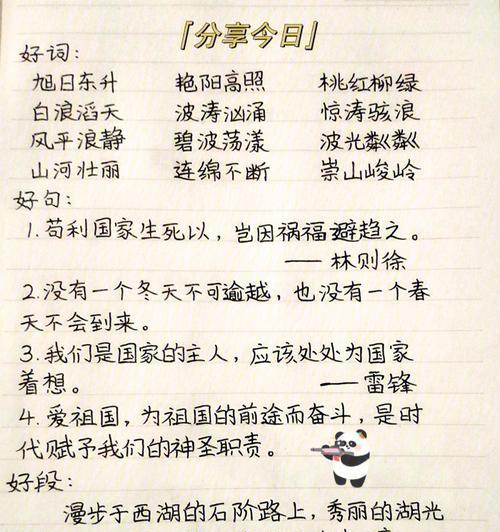 「分享今日」
好词：
旭日东升 艳阳高照 桃红柳绿
白浪滔天 波涛汹涌 惊涛骇浪
风平浪静 碧波荡漾 波光粼粼
山河壮丽 连绵不断 崇山峻岭
好句：
1.苟利国家生死以，岂因祸福避趋之。
——林则徐
2.没有一个冬天不可逾越，也没有一个春
天不会到来。
3.我们是国家的主人，应该处处为国家
着想。 ——雷锋
4.爱祖国，为祖国的前途而奋斗，是时
代赋予我们的神圣职责。
好段：
漫步于西湖的石阶路上，秀丽的湖光